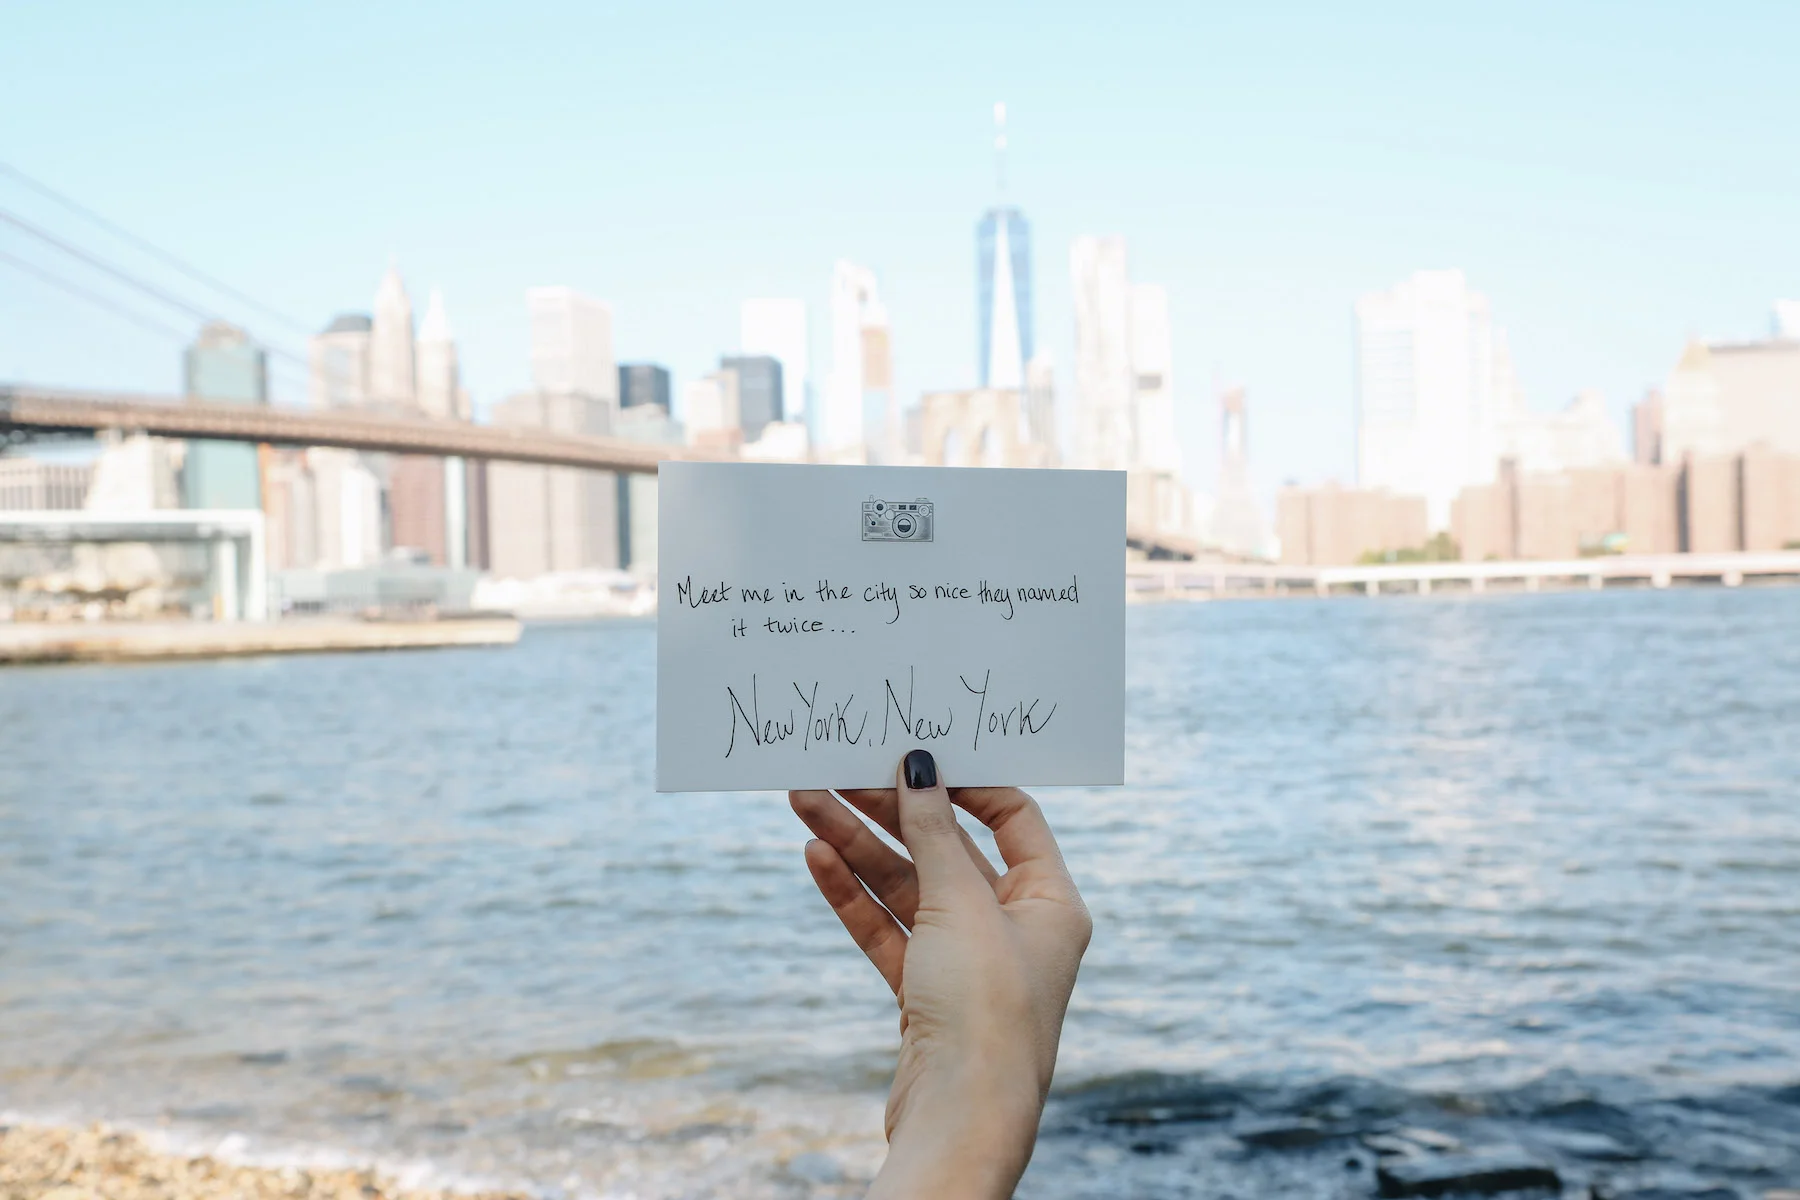 Meet me in the city so nice they named
it twice...
New York, New York